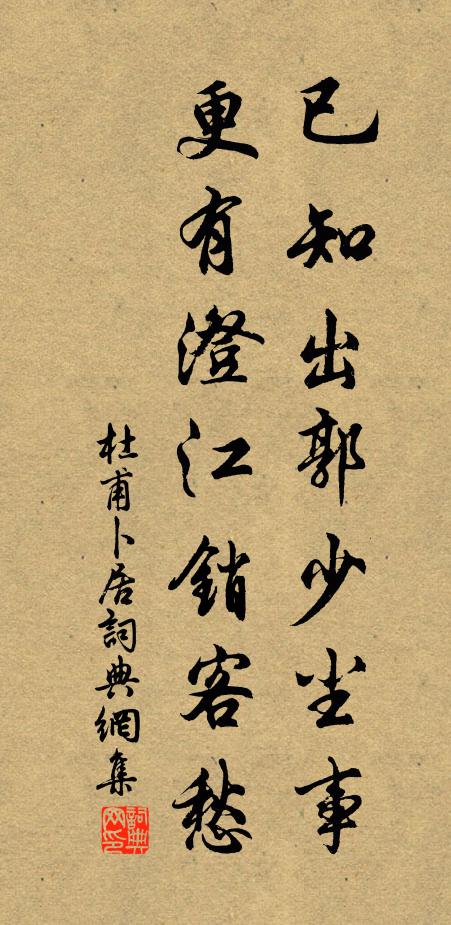 已知出郭少尘事
更有澄江銷客愁
杜甫卜居詞典網集
詞典网印